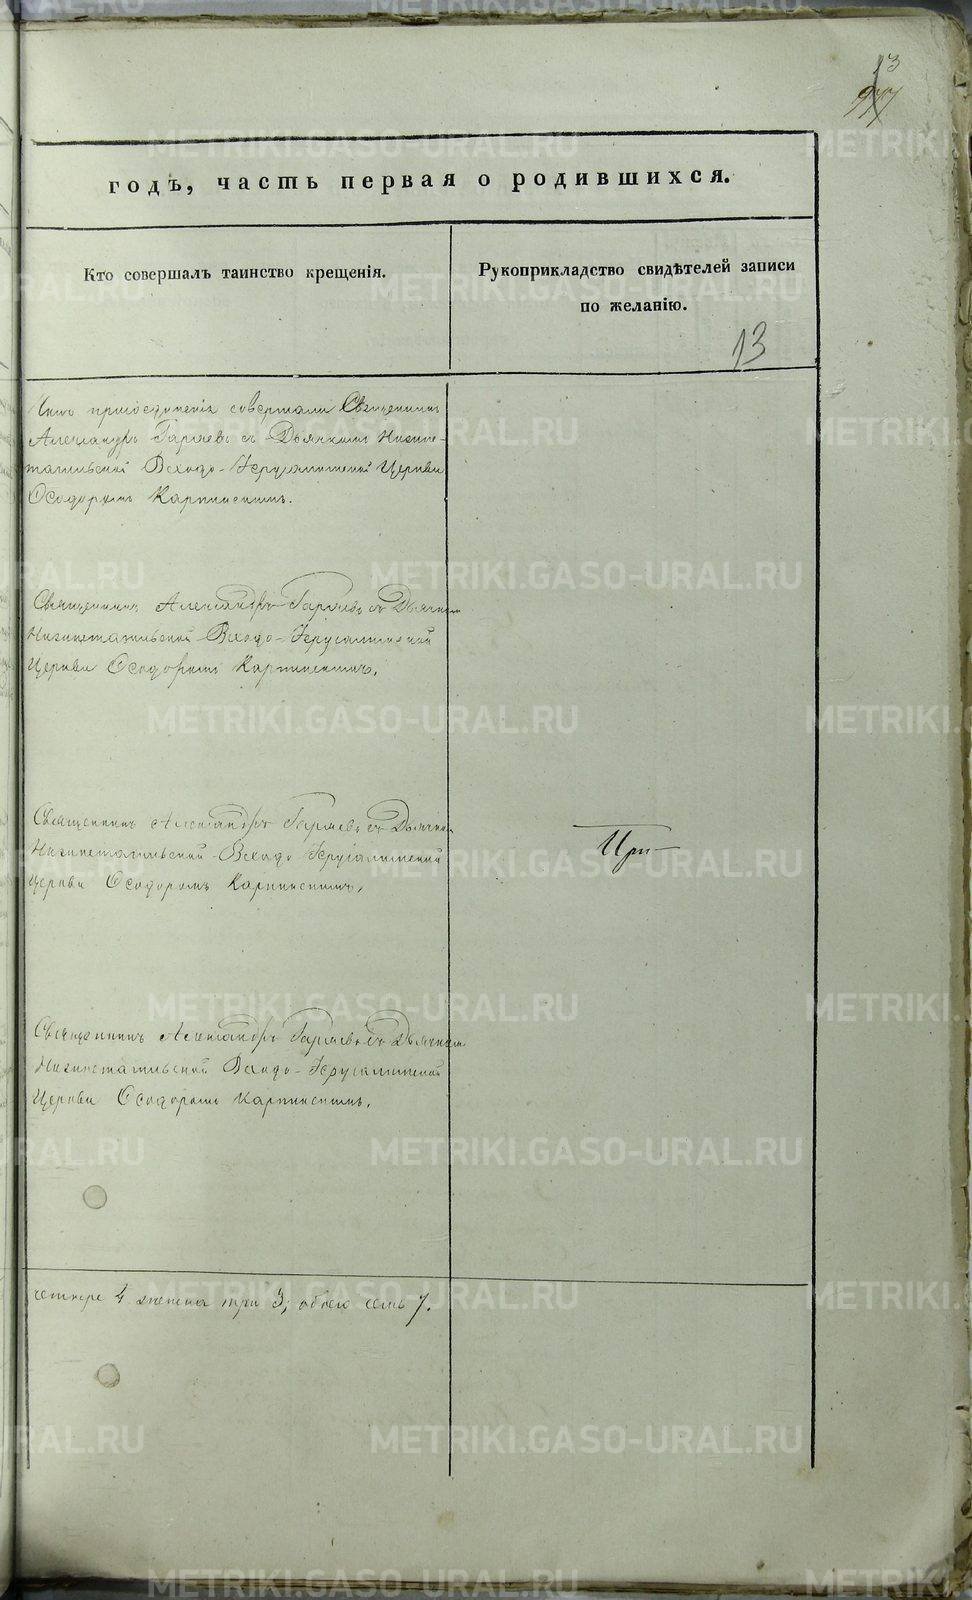 13
977
годъ, часть первая о родившихся.
Кто совершалъ таинство крещенія.
Рукоприкладство свидѣтелей записи
по желанію.
13
Чинъ присоединенія совершали Священникъ
Александръ Гаряевъ съ Дьячкомъ Нижне-
тагильской Входо-Іерусалимской Церкви
Ѳеодоромъ Карпинскимъ.
Священникъ Александръ Гаряевъ съ Дьячкомъ
Нижнетагильской Входо-Іерусалимской
Церкви Ѳеодоромъ Карпинскимъ.
Священникъ Александръ Гаряевъ съ Дьячкомъ
Нижнетагильской Входо Іерусалимской
Церкви Ѳеодоромъ Карпинскимъ.
При-
Священникъ Александръ Гаряевъ съ Дьячкомъ
Нижнетагильской Входо-Іерусалимской
Церкви Ѳеодоромъ Карпинскимъ.
четыре 4 женска три 3, обоего семь 7.
METRIKI.GASO-URAL.RU